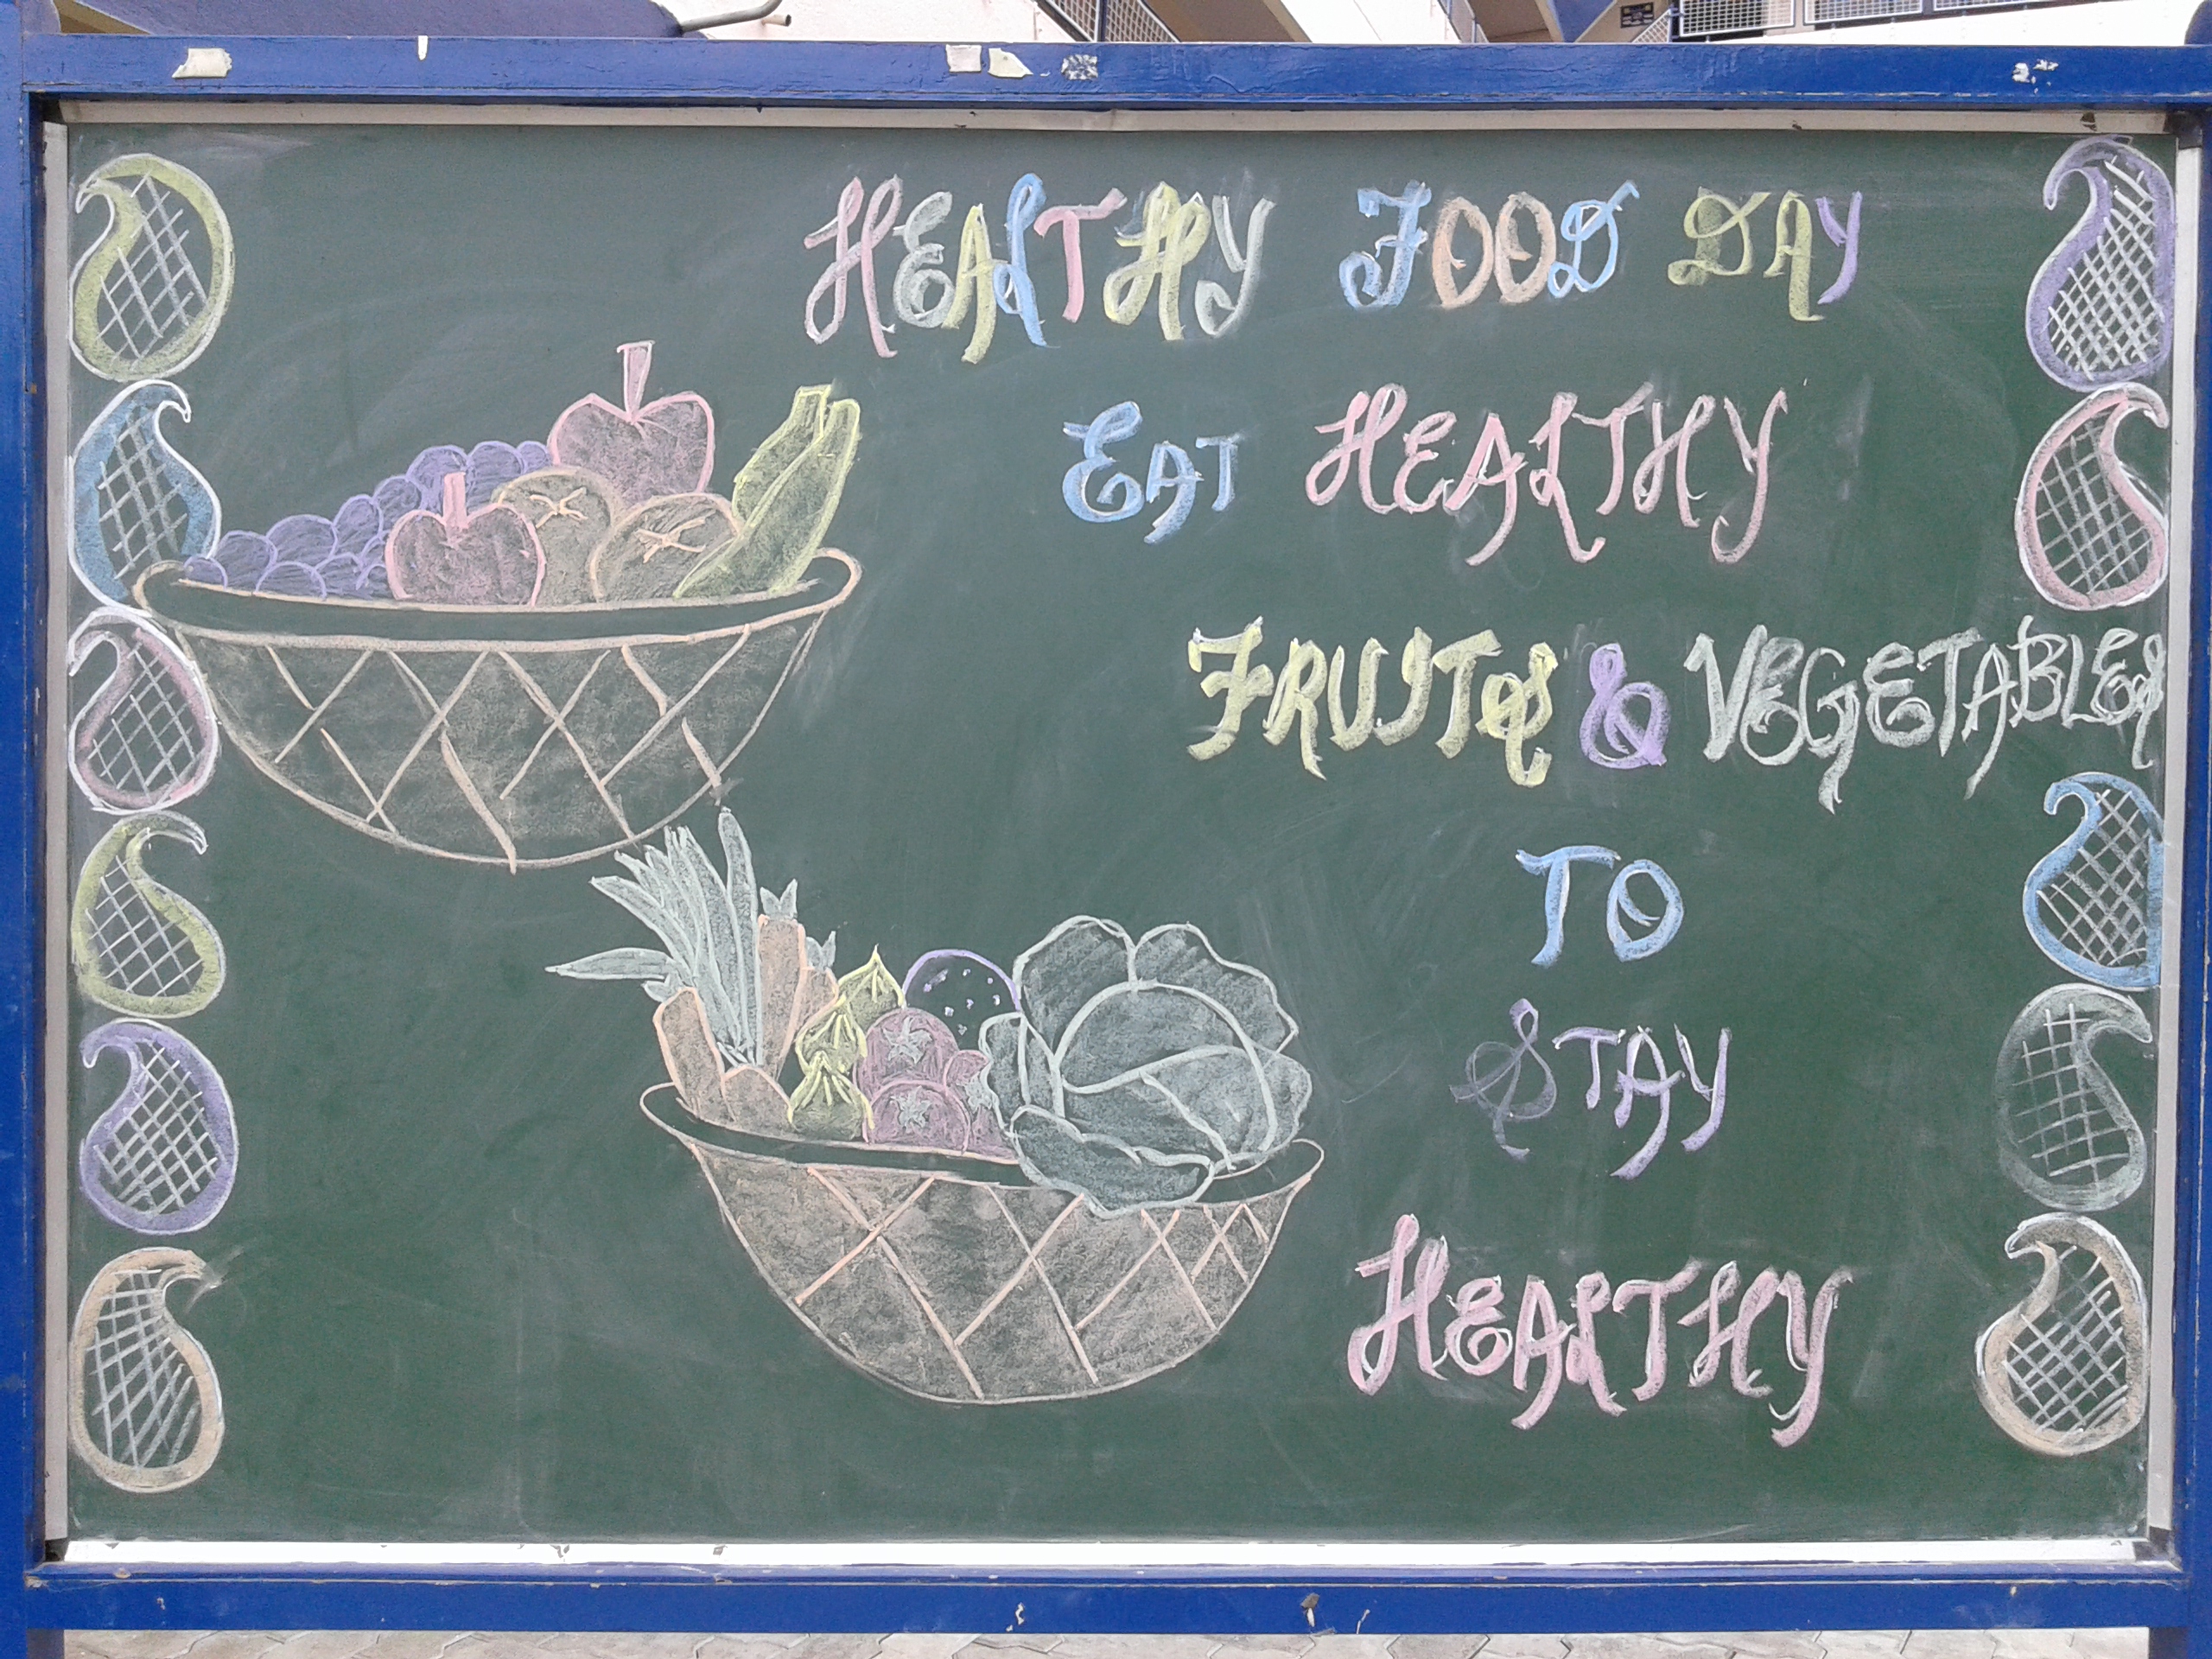 HEALTHY FOOD DAY
EAT HEALTHY
FRUITS & VEGETABLES
TO
STAY
HEALTHY